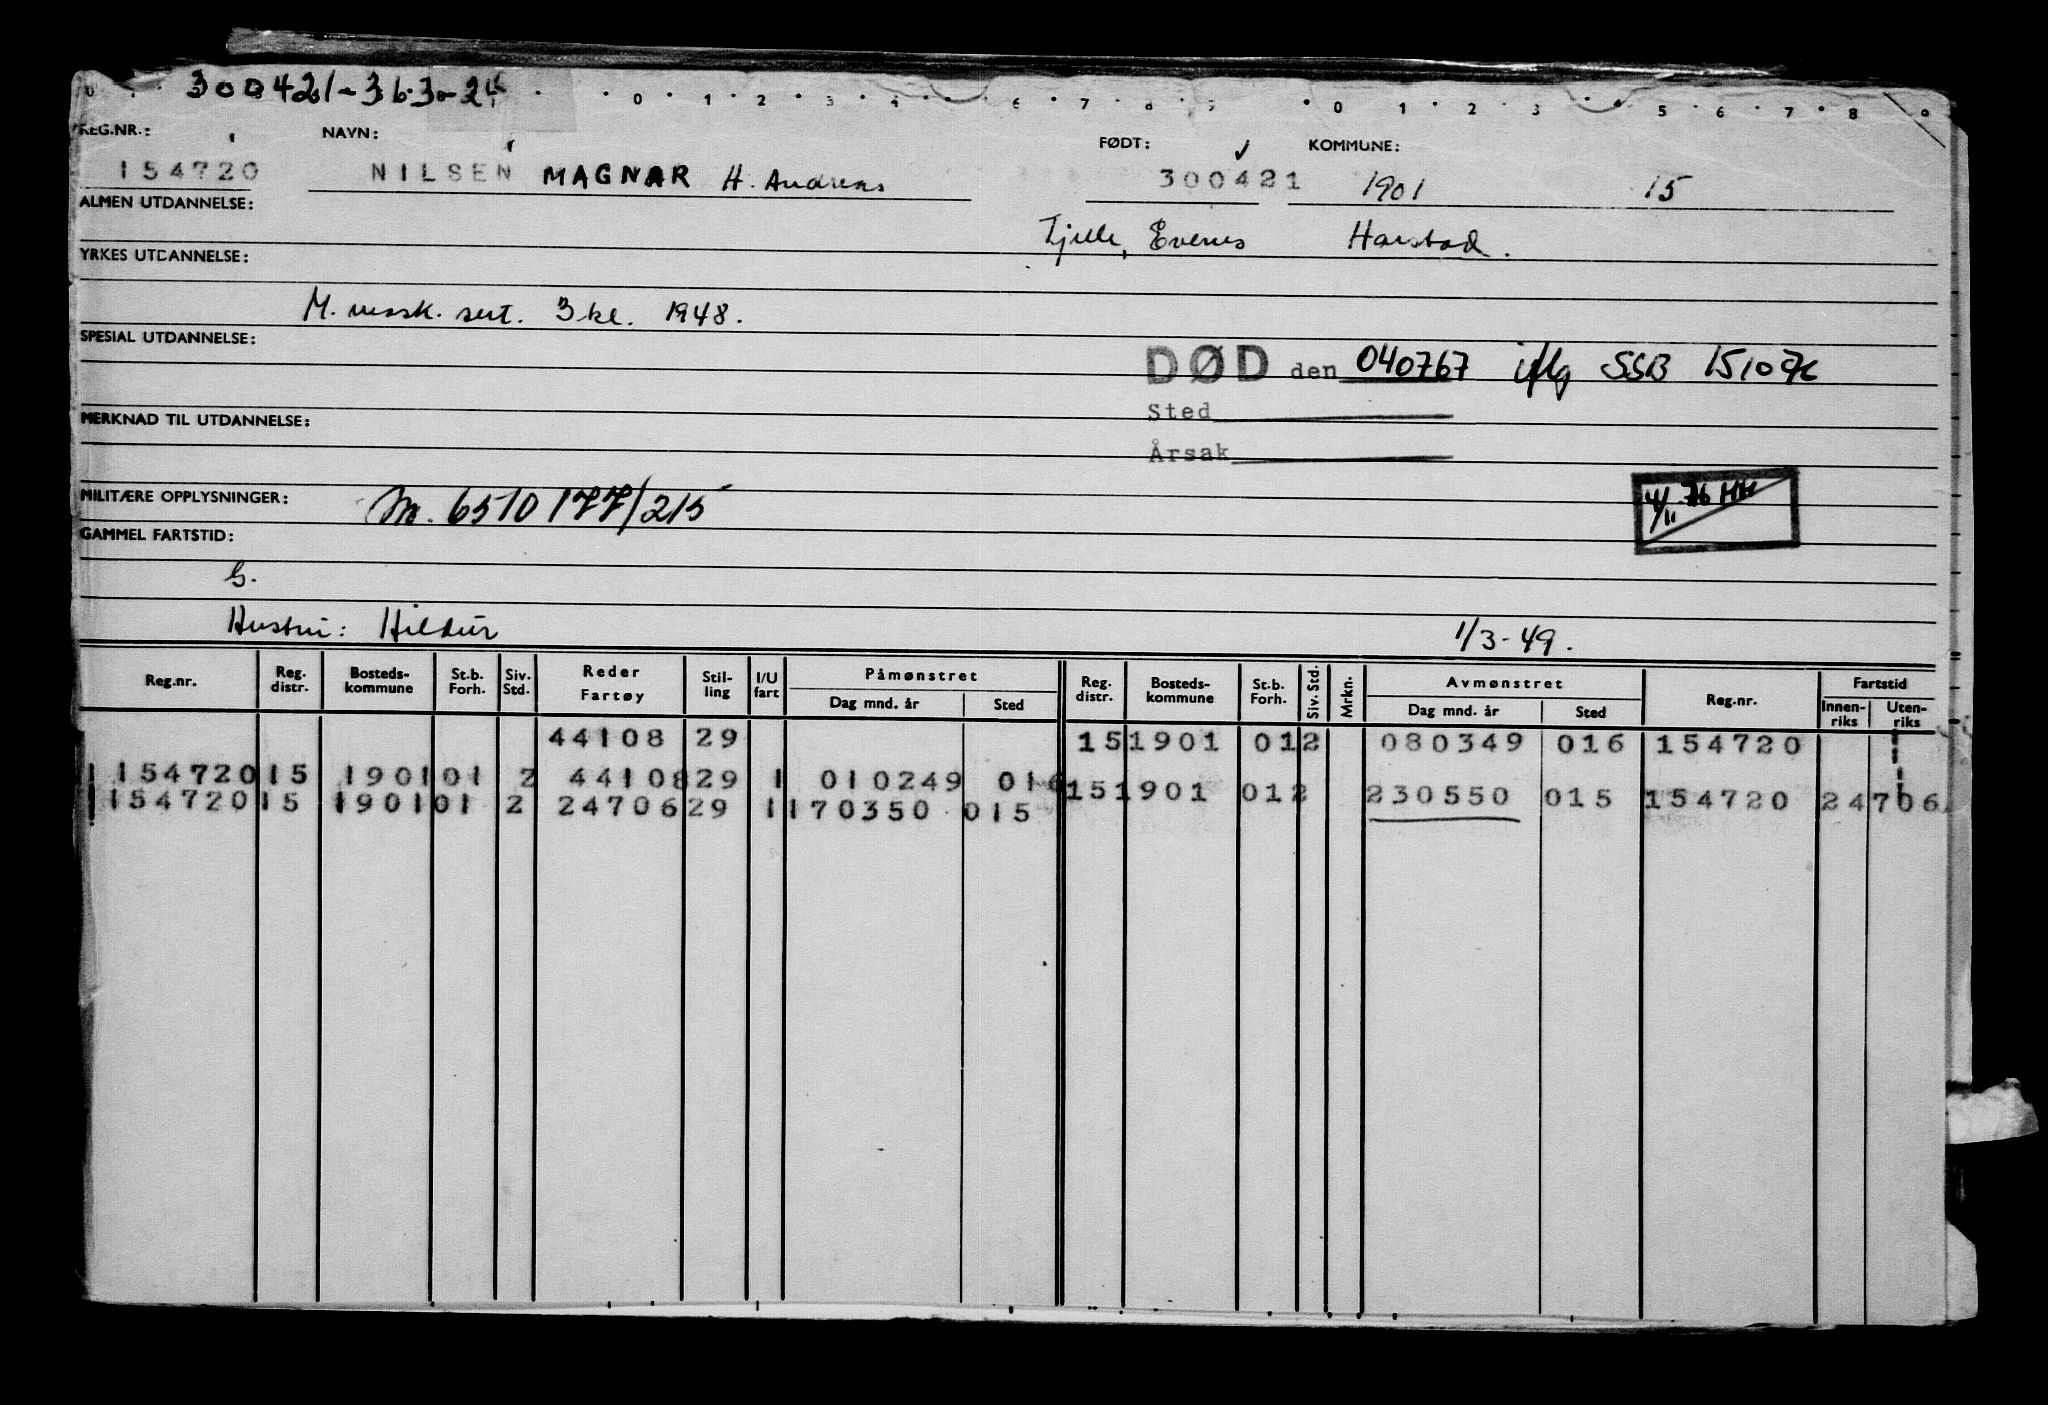 300421-363-24
0 1 2 3 4 6 7 8 9 0 1 2 3 4 5 6 7 8 9
REG.NR.: NAVN: FØDT: KOMMUNE:
154720 NILSEN MAGNAR H. Andreas 300421 1901 15
ALMEN UTDANNELSE:
Tjelle, Evenes Harstad.
YRKES UTDANNELSE:
M. mask. sert. 3 kl. 1948.
SPESIAL UTDANNELSE:
DØD den 040767 iflg SSB 151076
Sted
MERKNAD TIL UTDANNELSE:
Årsak
MILITÆRE OPPLYSNINGER: M. 6510 177/215
4/11 76 HH
GAMMEL FARTSTID:
G.
Hustru: Hildur 1/3-49.
Reg.nr. Reg. distr. Bosteds-kommune St.b. Forh. Siv. Std. Reder Fartøy Stil-ling I/U fart Påmønstret Dag mnd. år Sted Reg. distr. Bosteds-kommune St.b. Forh. Siv. Std. Mrkn. Avmønstret Dag mnd. år Sted Reg.nr. Fartstid Innen-riks Uten-riks
44108 29 15 1901 01 2 080349 016 154720
154720 15 1901 01 2 44108 29 1 010249 016 15 1901 01 2 230550 015 154720 24706
154720 15 1901 01 2 24706 29 1 170350 015